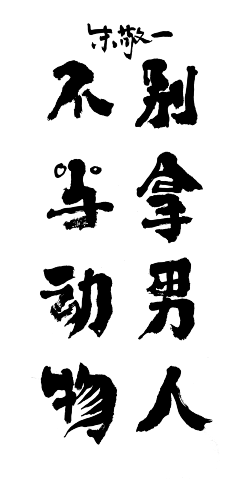 朱敬一
别拿男人
不当动物